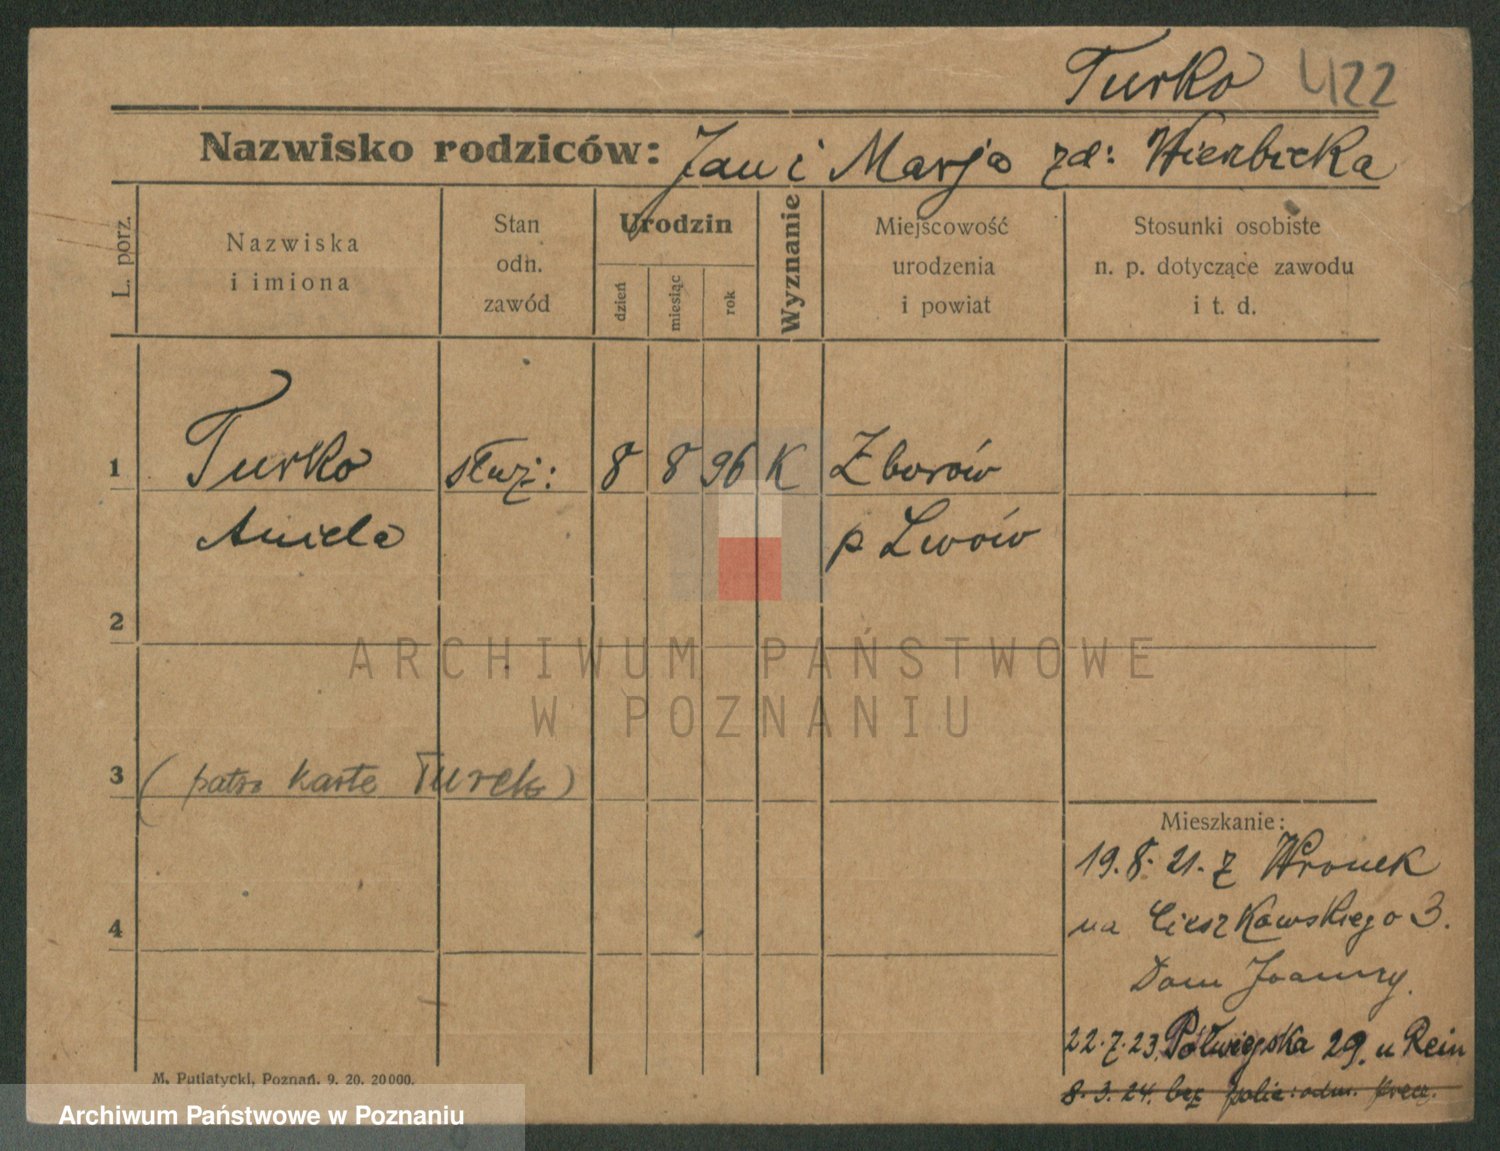 Turko 4122
Nazwisko rodziców: Jan i Marja zd: Wierzbicka
L. porz.
Nazwiska
i imiona
Stan
odn.
zawód
Urodzin
dzień
miesiąc
rok
Wyznanie
Miejscowość
urodzenia
i powiat
Stosunki osobiste
n. p. dotyczące zawodu
i t. d.
1 Turko służ: 8 8 96 K Zborów
Aniela p Lwów
2
ARCHIWUM PAŃSTWOWE
W POZNANIU
3 (patrz karte Turek)
Mieszkanie:
19.8.21. z Wronek
na Cieszkowskiego 3.
4
Dom Joanny.
22.7.23. Półwiejska 29. u Rein
8.3.24. bez
M. Putiatycki, Poznań. 9. 20. 20000.
Archiwum Państwowe w Poznaniu